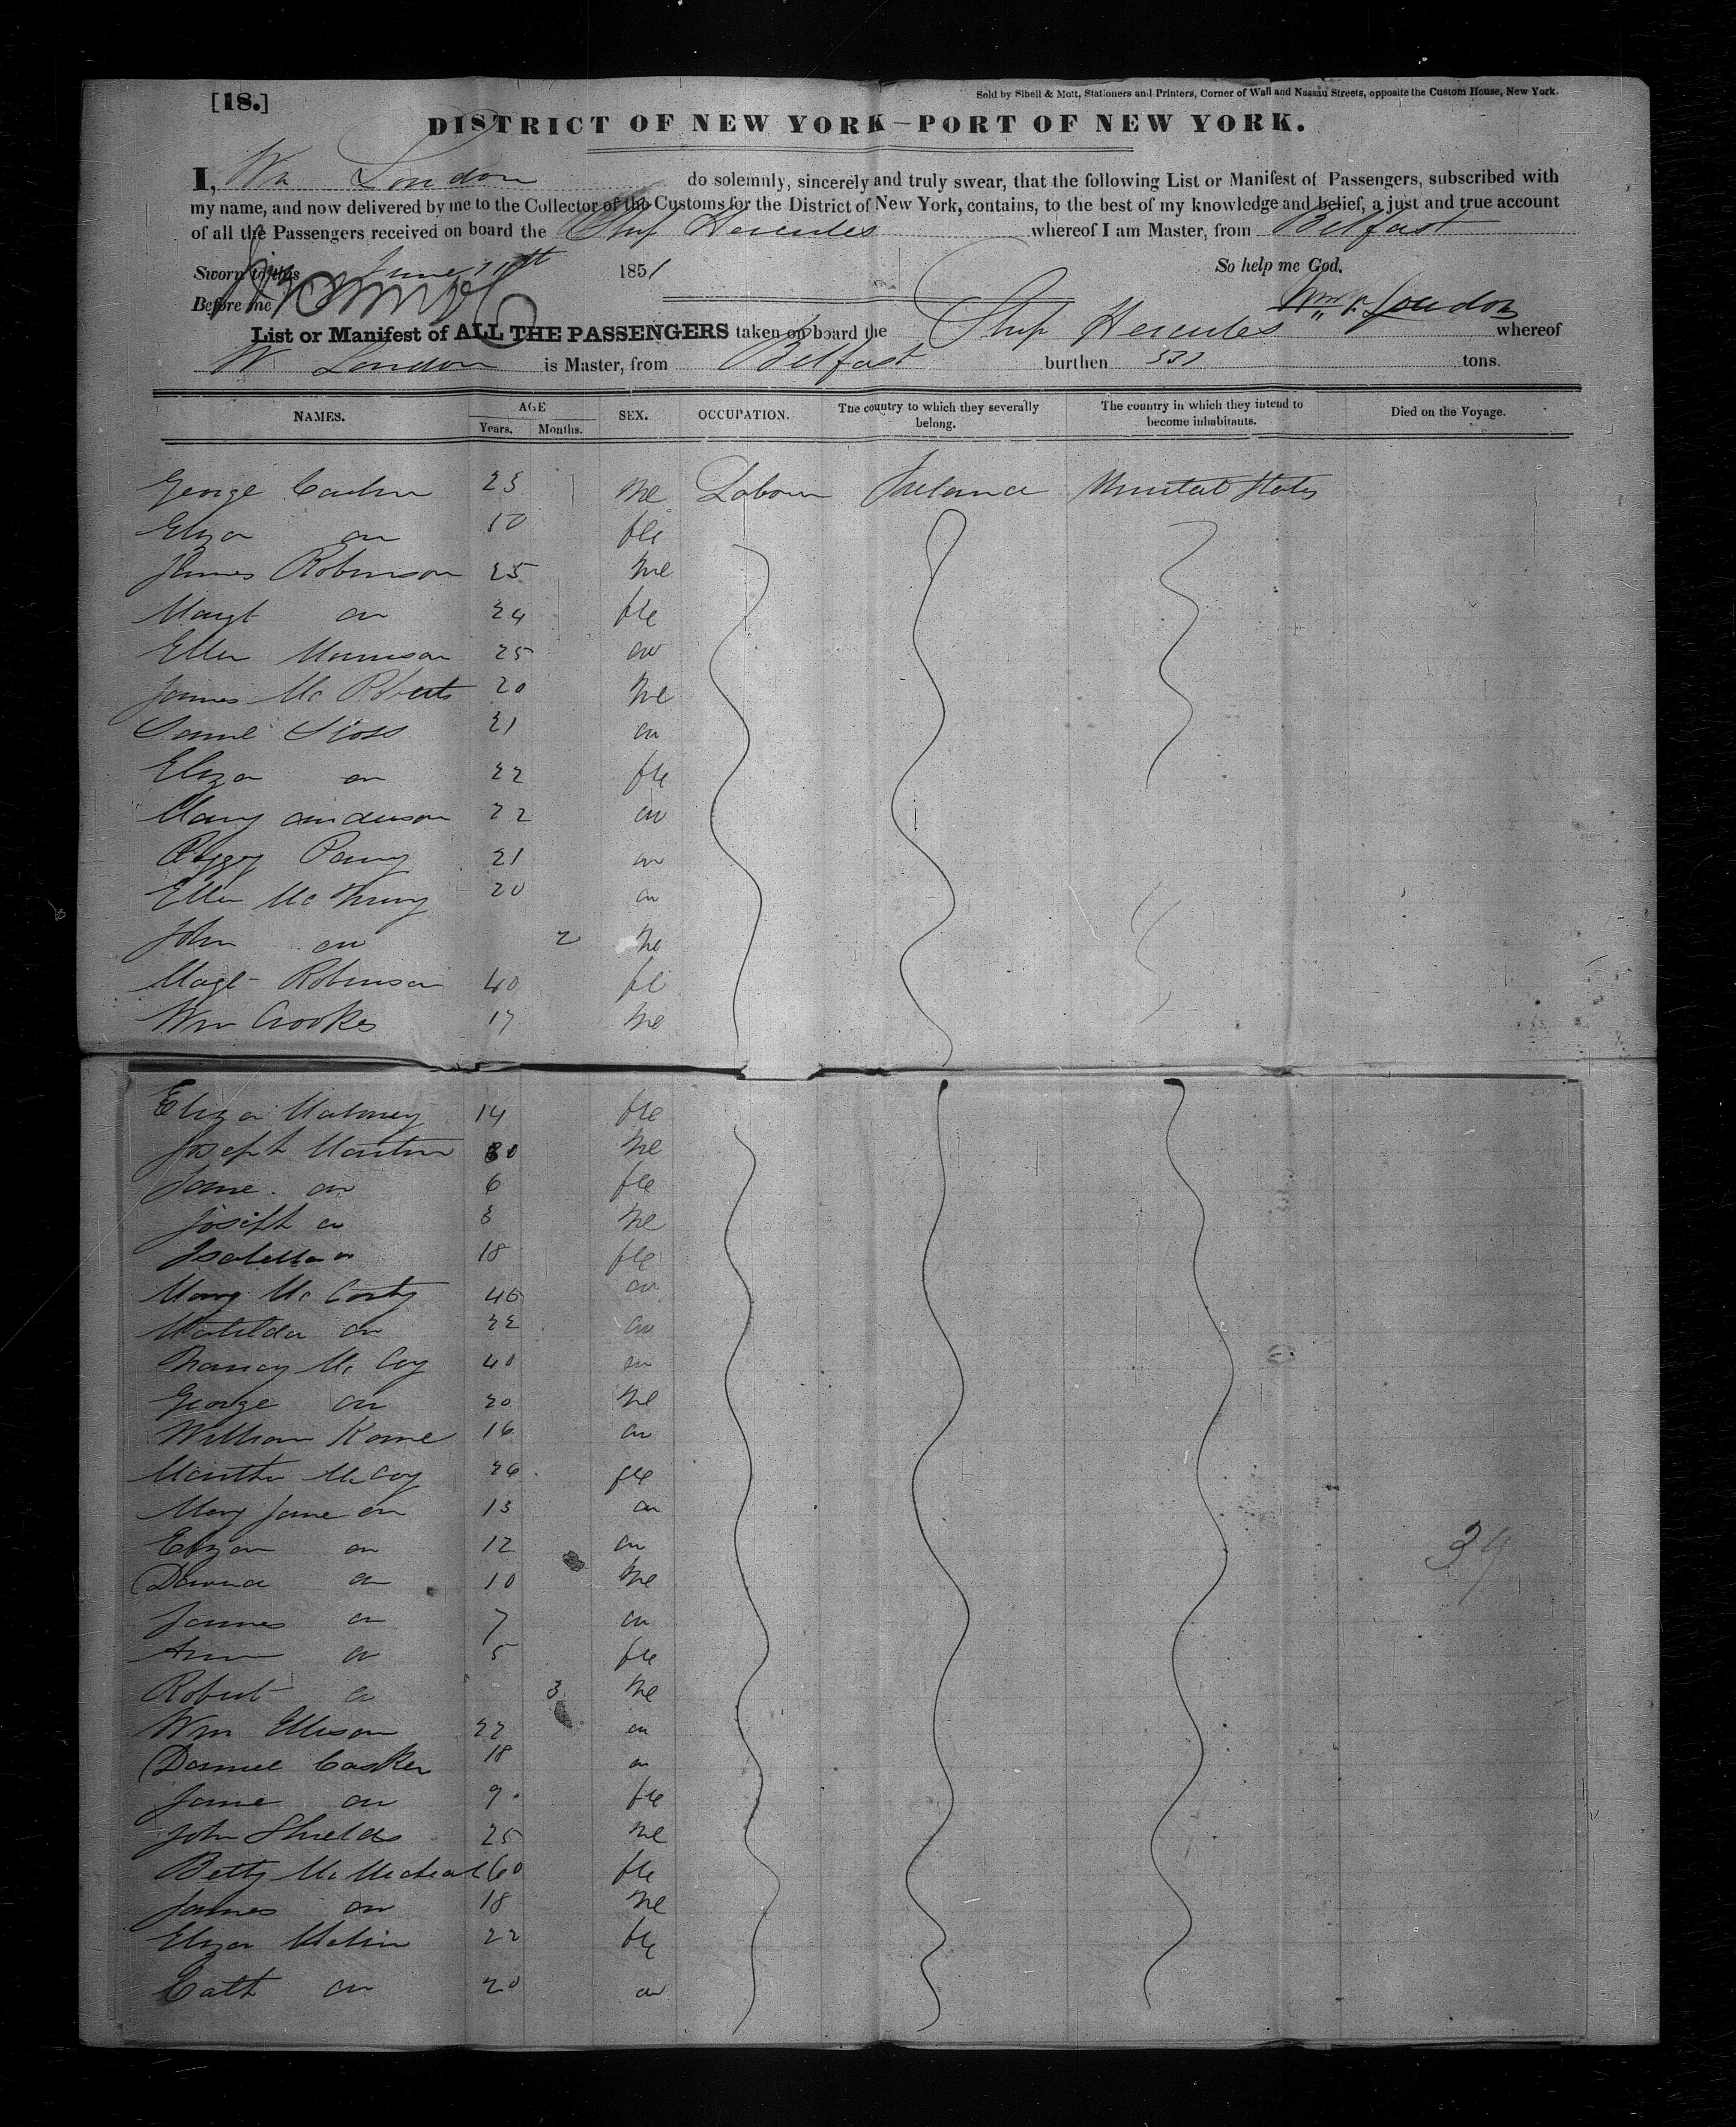 [18.]
Sold by Sibell & Mott, Stationers and Printers, Corner of Wall and Nassau Streets, opposite the Custom House, New York.
DISTRICT OF NEW YORK—PORT OF NEW YORK.
I, Wm London do solemnly, sincerely and truly swear, that the following List or Manifest of Passengers, subscribed with
my name, and now delivered by me to the Collector of the Customs for the District of New York, contains, to the best of my knowledge and belief, a just and true account
of all the Passengers received on board the Ship Hercules whereof I am Master, from Belfast
Sworn to this June 1851 So help me God.
Before me
List or Manifest of ALL THE PASSENGERS taken on board the Ship Hercules whereof
W London is Master, from Belfast burthen 531 tons.
NAMES. AGE Years. Months. SEX. OCCUPATION. The country to which they severally belong. The country in which they intend to become inhabitants. Died on the Voyage.
George 23 Me Labour Ireland United States
Eliza an 10 fle
James Robinson 25 Me
Margt an 24 fle
Ellen Morrison 25 an
James Mc Roberts 20 Me
Saml Sloss 21 an
Eliza an 22 fle
Mary anderson 22 an
Peggy 21 an
Ellen 20 an
John an 2 Me
Magt Robinson 40 fle
Wm Crooks 17 Me
Eliza 14 fle
Joseph Martin 30 Me
Jane an 6 fle
Joseph an 3 Me
Isabella an 18 fle
Mary Mc Carty 46 an
Matilda an 22 an
Nancy Mc Coy 40 an
George an 20 Me
William Kane 16 an
Martha McCoy 26 fle
Mary Jane an 13 an
Eliza an 12 an
David an 10 Me
James an 7 an
Ann an 5 fle
Robert an 3 Me
Wm Ellison 22 an
Daniel Casker 18 an
Jane an 9 fle
John Shields 25 Me
Betty Mc Micheal 60 fle
James an 18 Me
Eliza 22 fle
Cath an 20 an
39